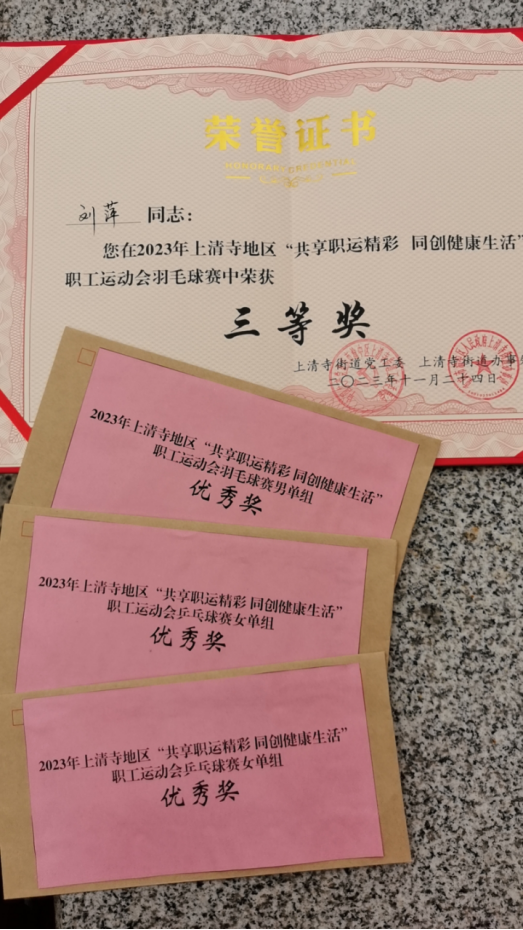 荣誉证书
刘萍 同志：
您在2023年上清寺地区“共享职运精彩 同创健康生活”
职工运动会羽毛球赛中荣获
三等奖
上清寺街道党工委 上清寺街道办事
二〇二三年十一月二十四日
2023年上清寺地区“共享职运精彩 同创健康生活”
职工运动会羽毛球赛男单组
优秀奖
2023年上清寺地区“共享职运精彩 同创健康生活”
职工运动会乒乓球赛女单组
优秀奖
2023年上清寺地区“共享职运精彩 同创健康生活”
职工运动会乒乓球赛女单组
优秀奖